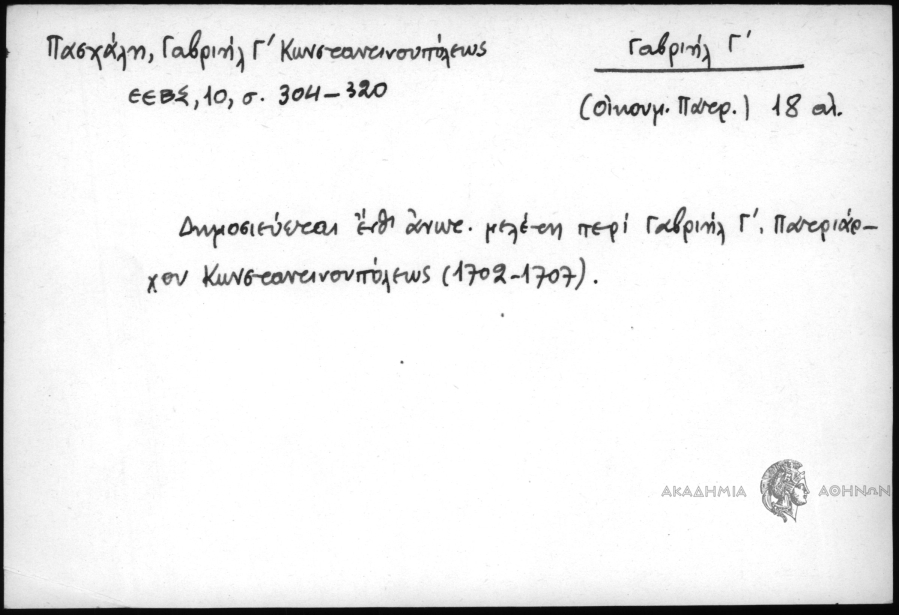 Πασχάλη, Γαβριήλ Γ' Κωνσταντινουπόλεως
ΕΕΒΣ, 10, σ. 304-320
Γαβριήλ Γ'
(Οἰκουμ. Πατρ.) 18 αἰ.
Δημοσιεύεται ἐνθ' ἀνωτ. μελέτη περί Γαβριήλ Γ', Πατριάρ-
χου Κωνσταντινουπόλεως (1702-1707).
ΑΚΑΔΗΜΙΑ ΑΘΗΝΩΝ